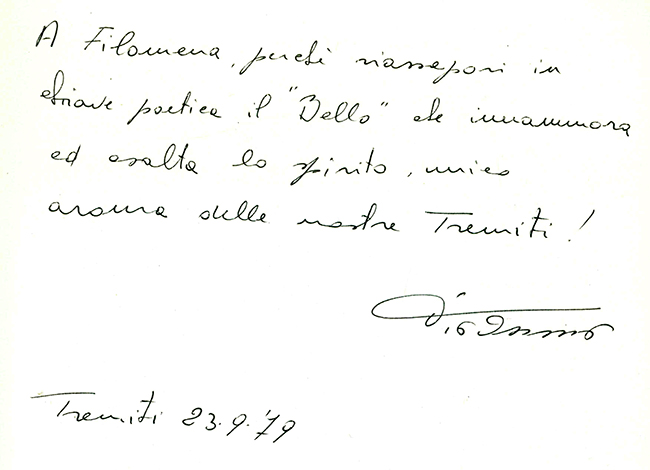 A Filomena, perché riassapori in
chiave poetica il "Bello" che innammora
ed esalta lo spirito, unico
aroma delle nostre Tremiti!
Tremiti 23.9.'79